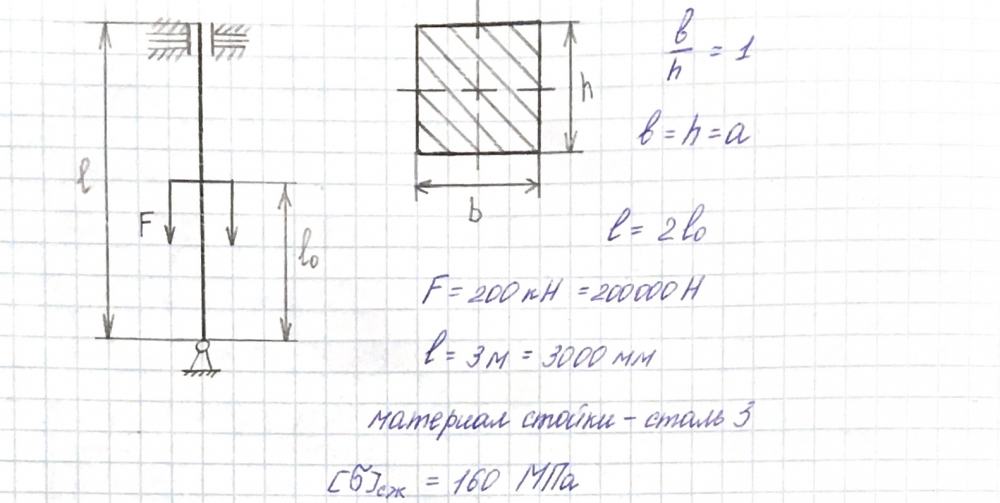 b/h = 1
b = h = a
l = 2l₀
F = 200 кН = 200000 Н
l = 3 м = 3000 мм
материал стойки - сталь 3
[σ]сж = 160 МПа
l
F
l₀
h
b